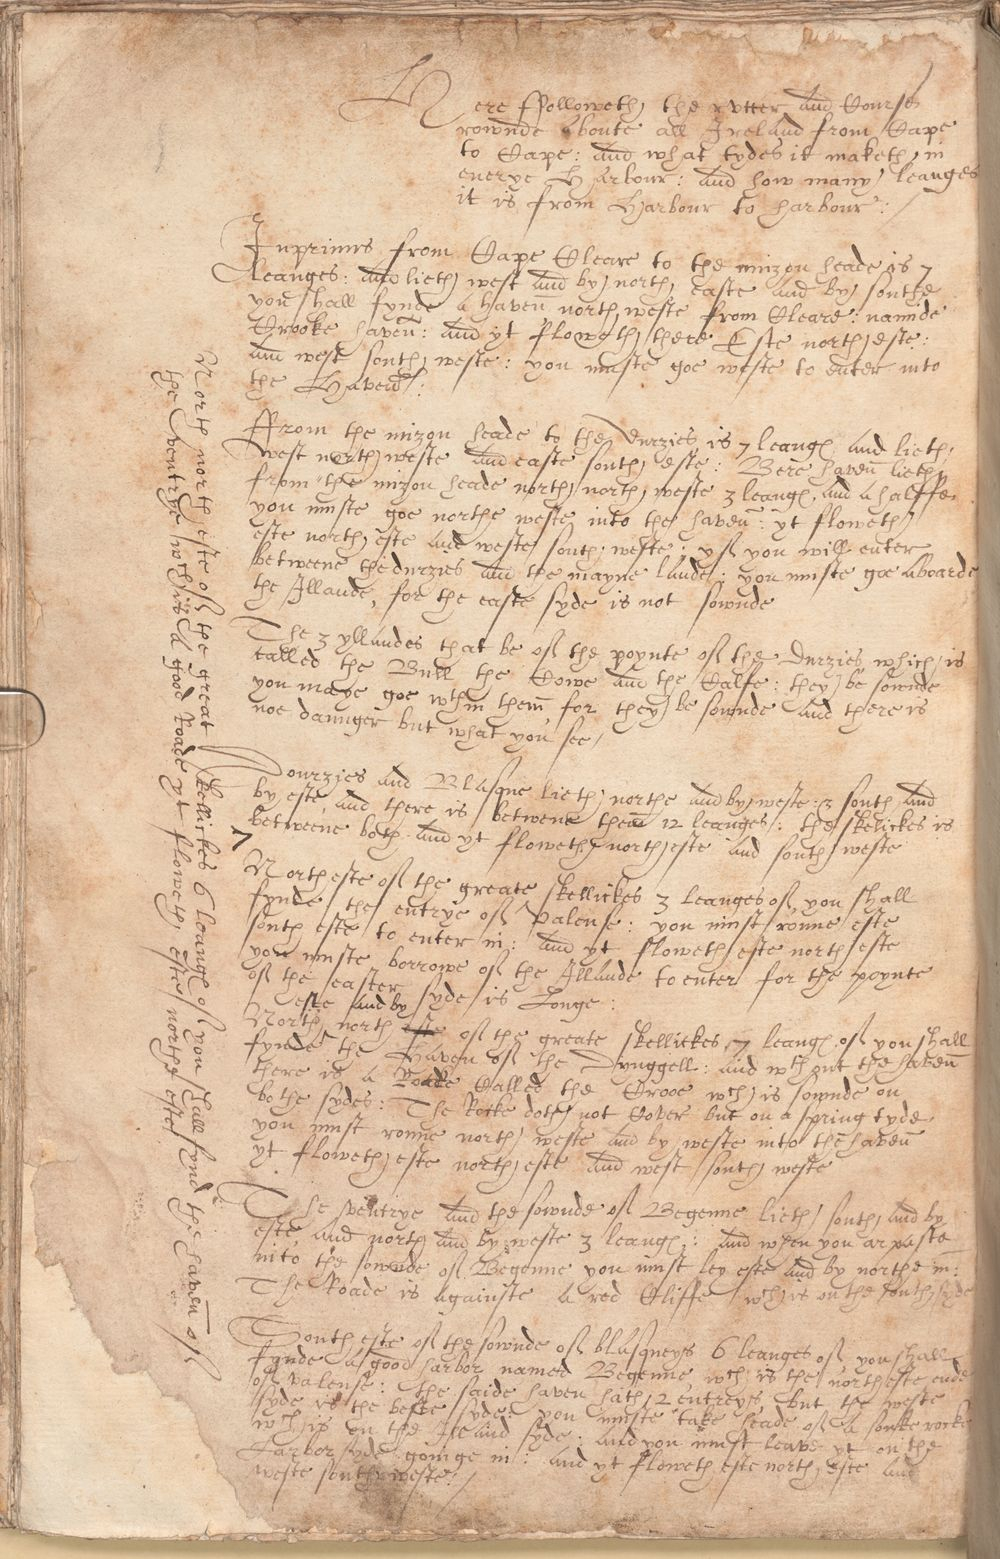 Here ffolloweth the rutter and Course
rownde aboute all Ireland from Cape
to Cape: and what tydes it maketh in
euerye Harbour: and how many leanges
it is from Harbour to harbour:
Inprimis from Cape Cleare to the mizon heade is 7
leanges: and lieth west and by north, easte and by southe
you shall fynde a haven north weste from Cleare: namide
Crooke haven: and yt floweth there Este north este:
and west south weste: you muste goe weste to enter into
the Haven:
ffrom the mizon heade to the Durzies is 7 leang and lieth
west north weste and easte south este: Bere haven lieth
from the mizon heade north north weste 3 leang and a halffe
you muste goe northe weste into the haven: yt floweth
este north este and weste south weste: yf you will enter
betweene the durzies and the mayne lande: you muste goe aboarde
the Illande, for the easte syde is not sownde
The 3 yllandes that be of the poynte of the Durzies which is
called the Bull the Cowe and the Calfe: they be sownde
you maye goe wthin them for they be sownde and there is
noe daunger but what you see
Dourzies and Blasque lieth northe and by weste: & south and
by este, and there is betwene them 12 leanges: the skelickes is
betweene both and yt floweth north este and south weste
North este of the greate skellickes 3 leanges of you shall
fynde the entrye of Valense: you must ronne este
south este to enter in: and yt floweth este north este
you muste borrowe of the Illande to enter for the poynte
of the easter syde is Longe:
este and by
North north este of the greate skellickes 7 leang of you shall
fynde the Haven of the Dynggell: and wthout the haven
there is a Roade Called the Crooe wch is sownde on
bothe sydes: The Rocke doth not Cover but on a spring tyde
you must ronne north weste and by weste into the haven
yt floweth este north este and west south weste
The Ventrye and the sownde of Begenne lieth south and by
este, and north and by weste 3 leang: and when you ar paste
into the sownde of Begenne you must ley este and by northe in:
The Roade is againste a red Cliffe wch is on the south syde
South este of the sownde of blasqueys 6 leanges of you shall
fynde a good harbor named Begenne wch is the north este ende
of Valense: the saide haven hath 2 entreys, but the weste
syde is the beste syde: you muste take heade of a sonke rocke
wch is on the Iland syde: and you must leave yt on the
Larbor syde goinge in: and yt floweth este north este and
weste south weste:
North north este of the great skellickes 6 leang of you shall fynd the haven of
the Ventrye which is a good Roade yt floweth este northe este